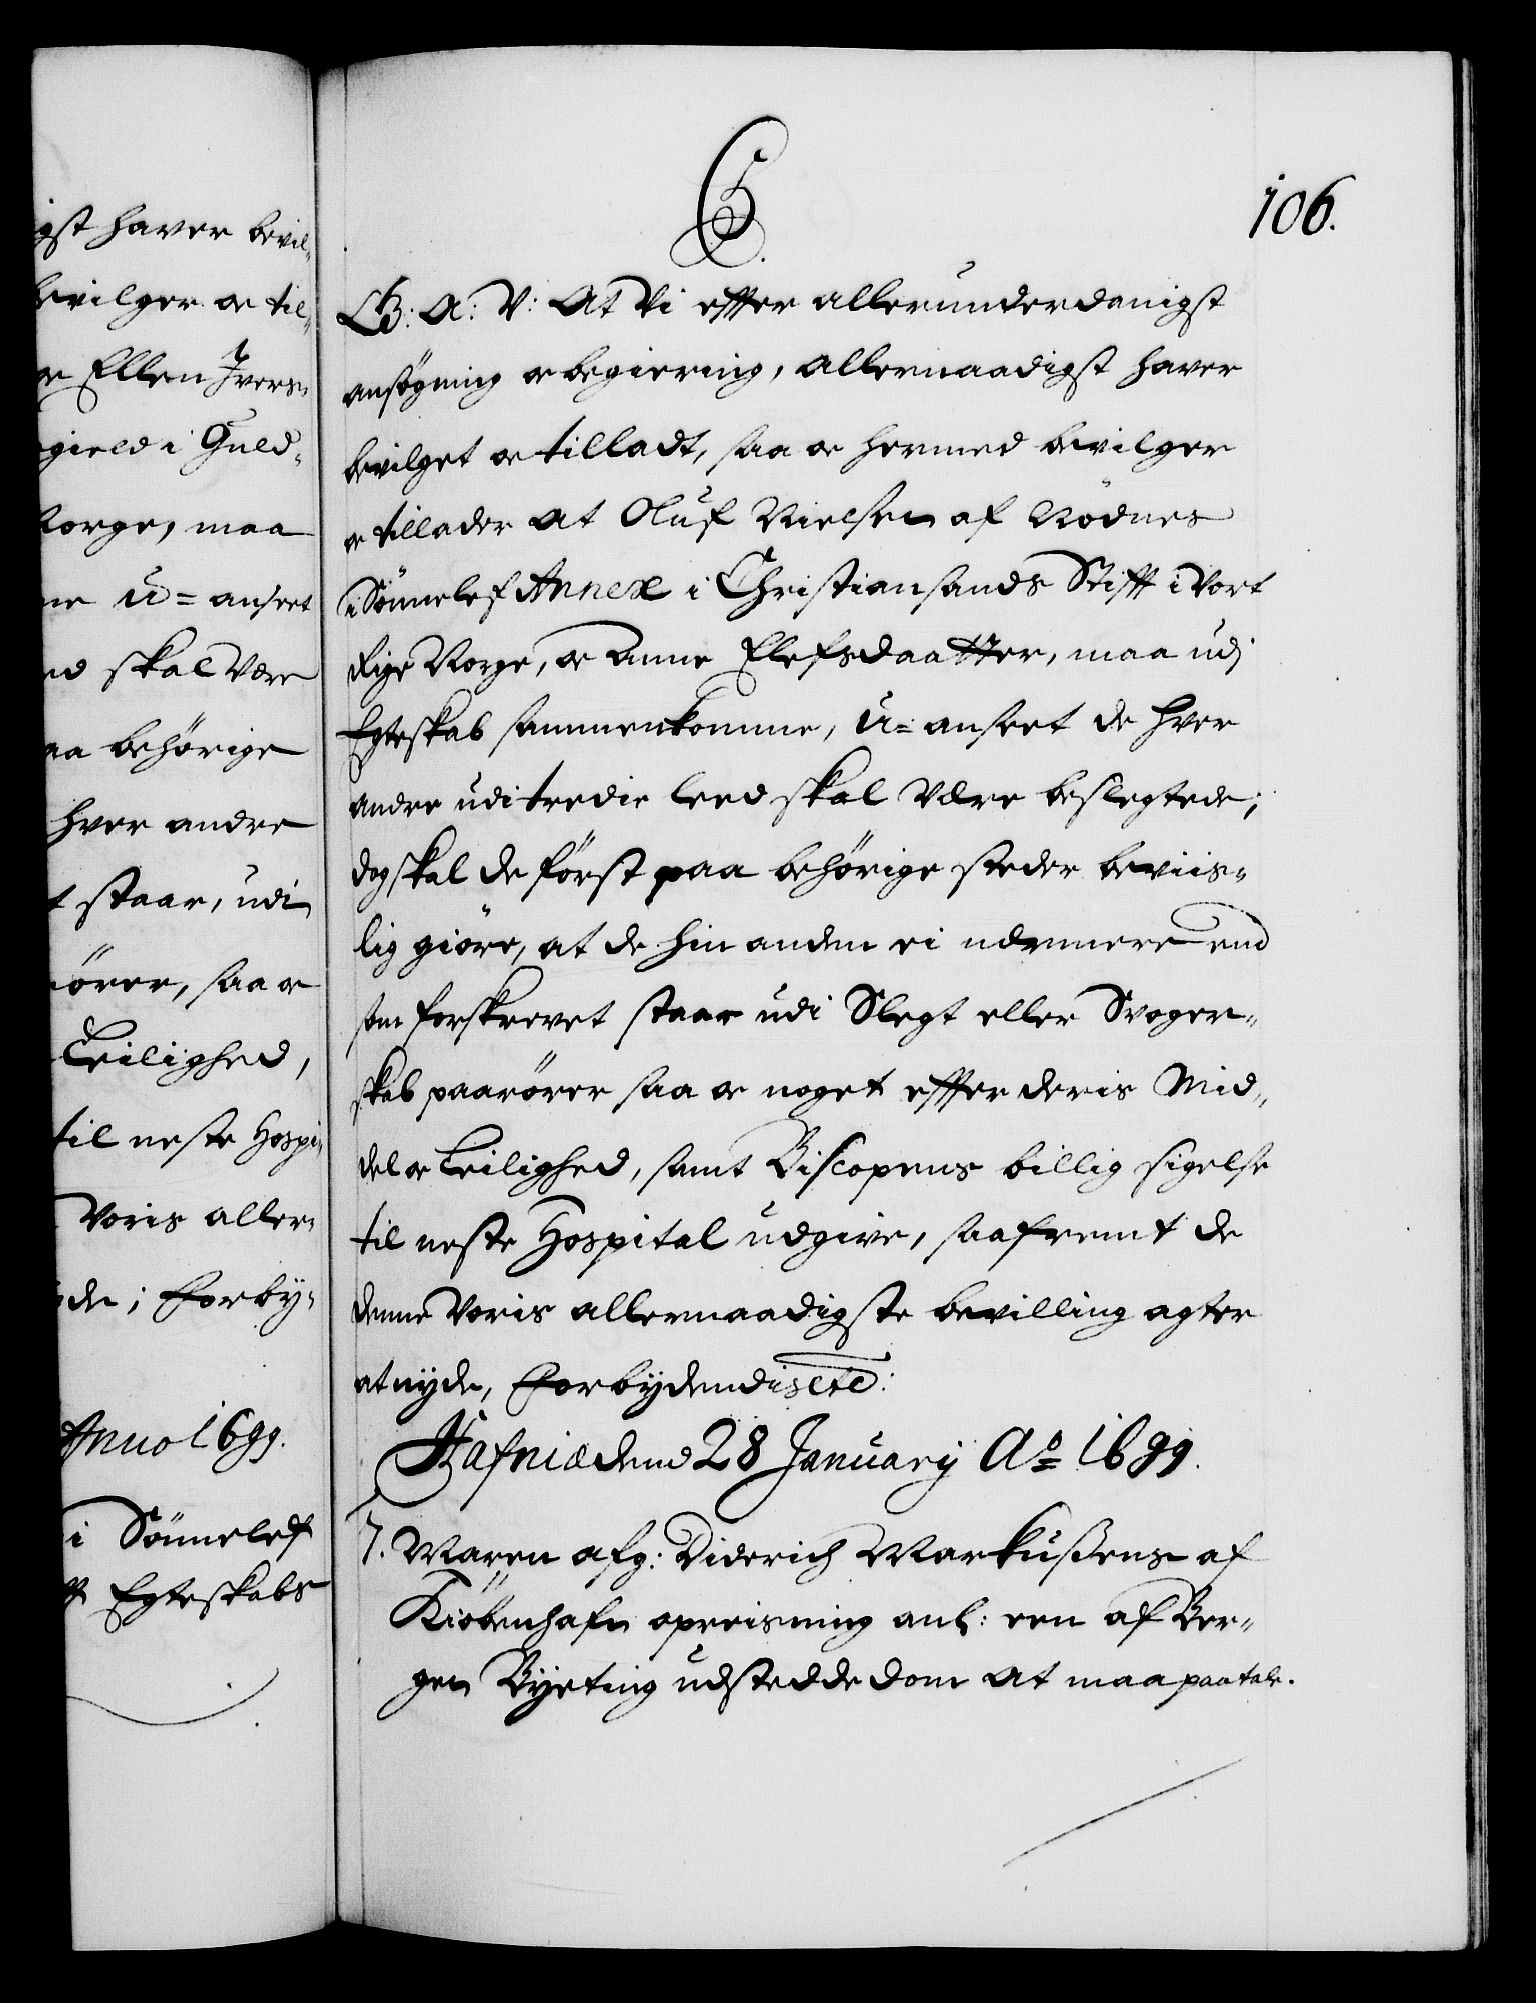 igst haver bevil-
bevilger oc til-
oc Ellen Ivers-
gield i Guld-
Norge, maa
ne u=anseet
ed skal være
aa behörige
hver andre
t staar, udi
örer, saa oc
Leilighed,
til neste Hospi-
Voris aller-
de; Forby-
Anno 1699.
i Sönnelef
Egteskabs
6.
106.
G: A: V: At Vi effter allerunderdanigst
ansögning oc begiering, allernaadigst haver
bevilget oc tilladt, saa oc hermed bevilger
oc tillader at Oluf Nielsen af Rödnes
i Sönnelef Annex i Christiansands Stifft i Vort
Rige Norge, oc Anne Elefsdaatter, maa udj
Egteskab sammenkomme, u=anseet de hver
andre udi tredie leed skal være beslegtede;
dog skal de först paa behörige steder beviis-
lig giöre, at de hin anden ei nærmere end
som forskrevet staar udi Slegt eller Svoger-
skab paarörer saa oc noget effter deris Mid-
del oc Leilighed, samt Biscopens billig sigelse
til neste Hospital udgive, saafremt de
denne Voris allernaadigste bevilling agter
at nyde, Forbydendis etc:
Hafniæ dend 28 January Ao 1699.
7. Maren afg: Diderich Markussens af
Kiöbenhafn opreisning anl: een af Ber-
gen Byeting udstedde dom at maa paatale.